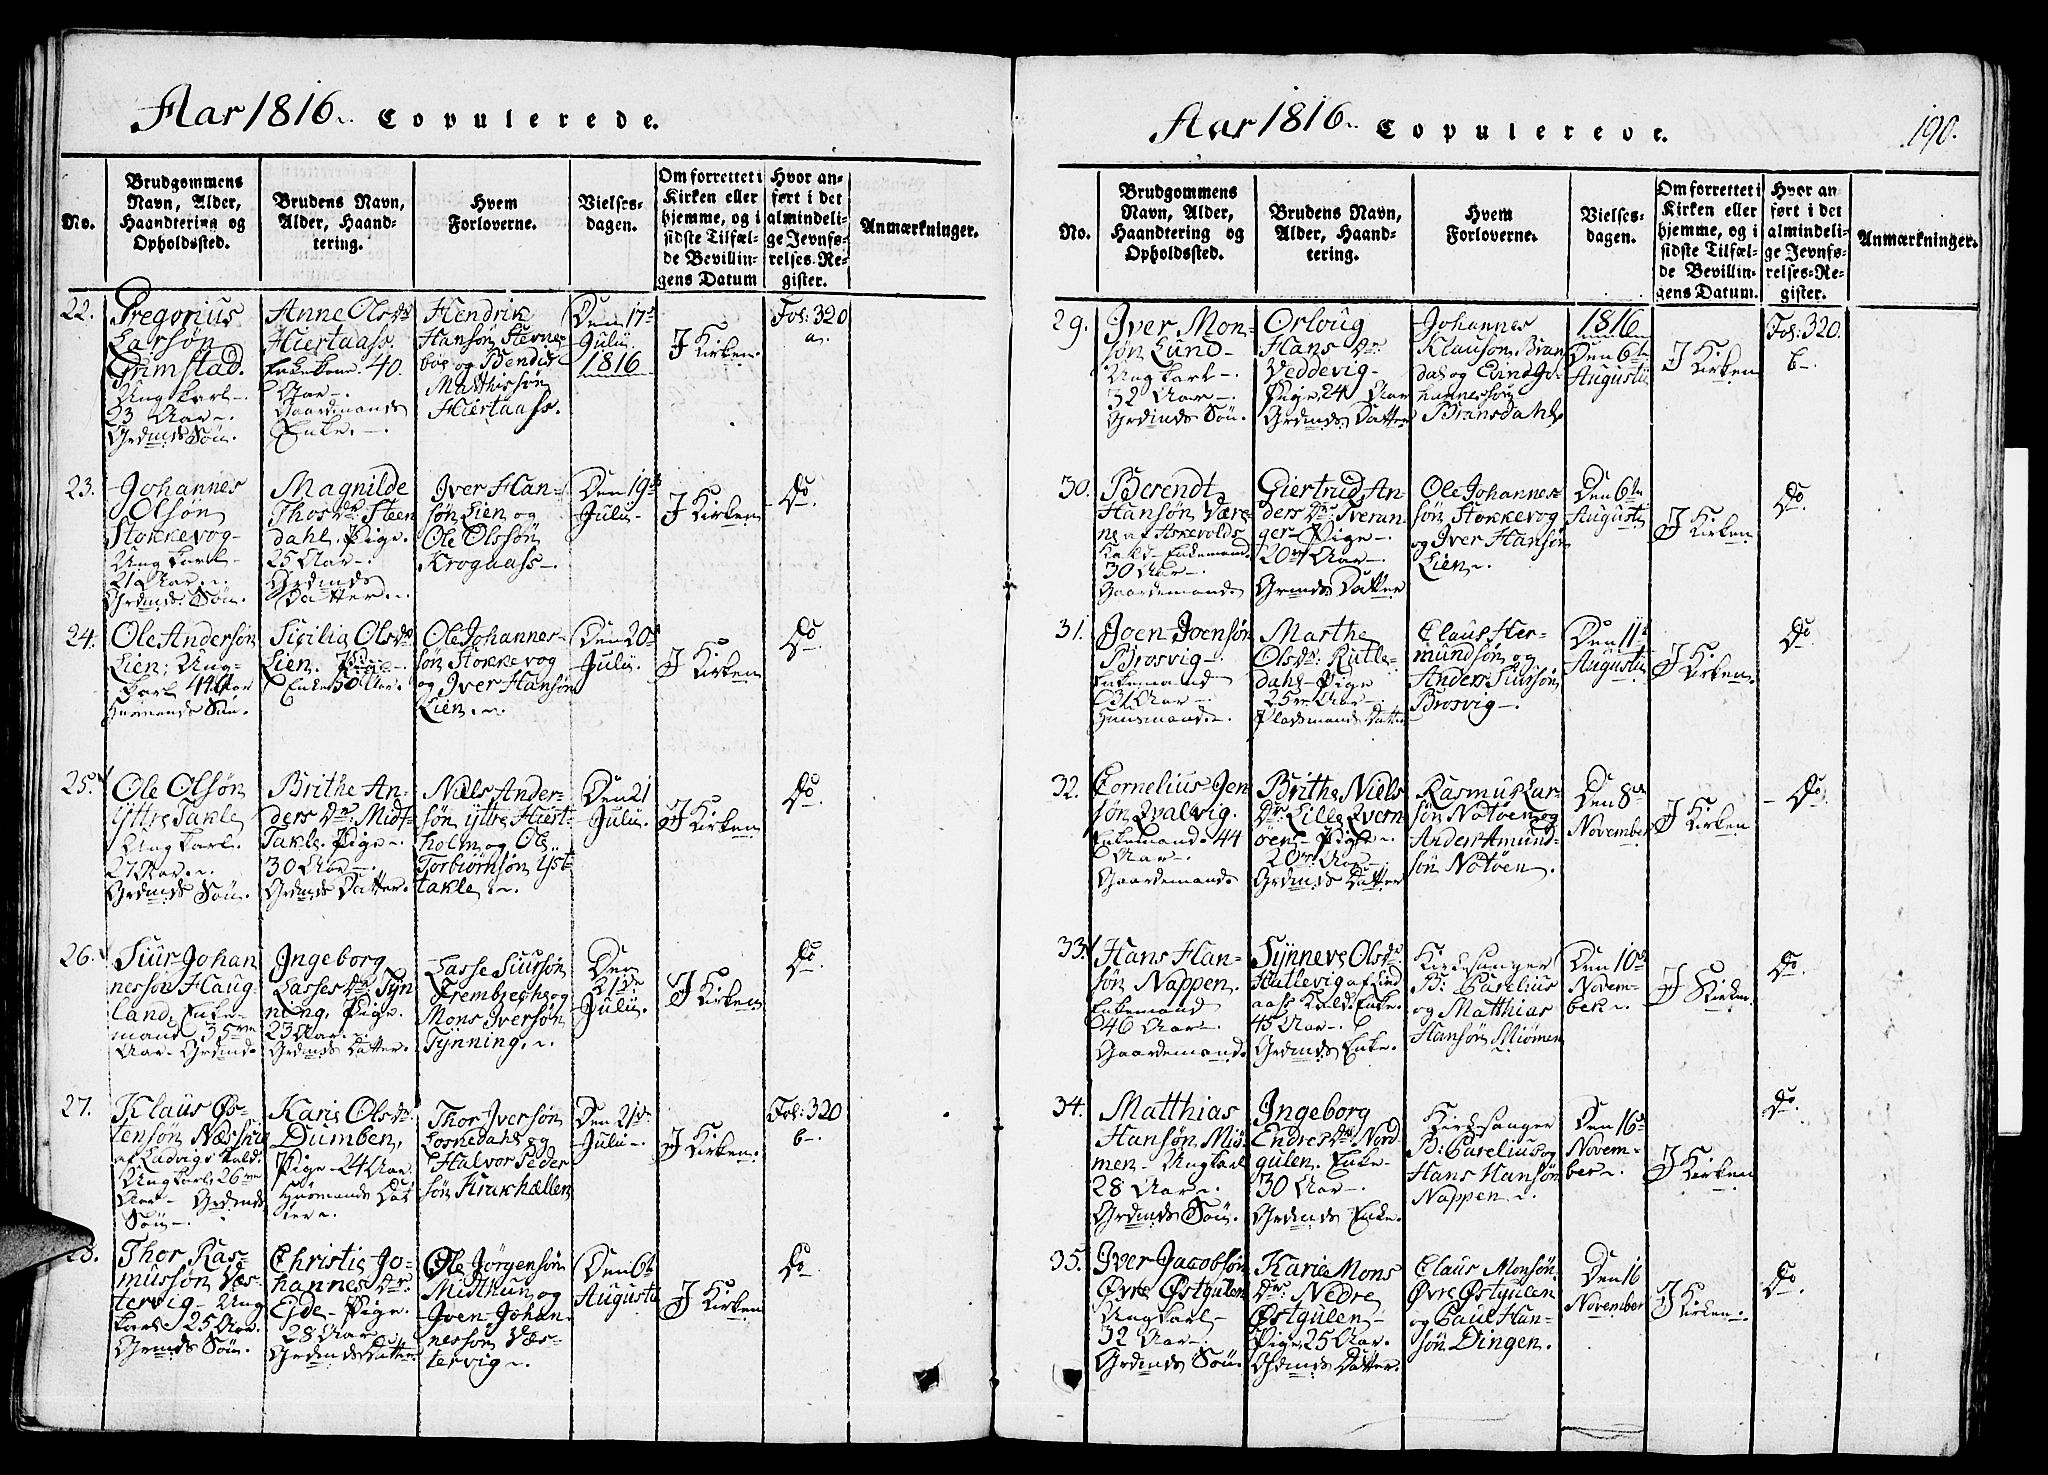 Aar 1816. Copulerede.
No.
Brudgommens
Navn, Alder,
Haandtering og
Opholdssted.
Brudens Navn,
Alder, Haand-
tering.
Hvem
Forloverne.
Vielses-
dagen.
Om forrettet i
Kirken eller
hjemme, og i
sidste Tilfæl-
de Bevillin-
gens Datum
Hvor an-
ført i det
almindeli-
ge Jevnfø-
relses-Re-
gister.
Anmærkninger.
22.
Gregorius
Larsøn
Grimstad.
Ungkarl-
23 Aar-.
Grdmds Søn.
Anne Olsdr
Hiertaass.
Enkekone. 40.
Aar-.
Gaardmands
Enke.-.
Hendrik
Hansøn Sterne-
boe og Bendix
Matthissøn
Hiertaass.
Den 17de
Julii
1816
J Kirken.
Fol: 320
a.
23.
Johannes
Olsøn
Stokkevog-
Ungkarl-
21 Aar.
Grdmds. Søn.
Magnilde
Thosdr: Steen
dahl. Pige.
25 Aar-.
Grdmds
Datter.
Iver Han-
søn Lien og
Ole Olssøn
Krogaass-.
Den 19de
Julii-
J Kirken
Do
24.
Ole Andersøn
Lien; Ung-
karl 44 Aar
Huusmands Søn.
Sicilia Olsdr
Lien. Pige-
Enke 50 Aar.
Ole Johannes-
søn Stokkevog
og Iver Hansøn
Lien.
Den 20de
Julii.
J Kirken.
Do
25.
Ole Olsøn
Yttre Takle
Ungkarl.
27 Aar.
Grdmds Søn.
Brithe An-
ders Dr: Midt-
Takle. Pige.
30 Aar-.
Grdmds Datter.
Niels Ander-
søn yttre Hiert-
holm og Ole
Torbiørnsøn Yst-
takle.
Den 21
Julii.
J Kirken
Do
26.
Siur Johan
nessøn Haug-
land, Enke-
mand 35
Aar. Grdmd.
Ingeborg
Lasses Dr: Tyn
ning, Pige.
23 Aar.
Grdmds Datter.
Lasse Siursøn
Frembrechs og
Mons Iversøn
Tynning.
Den
21de
Julii.
J Kirken
Do
27.
Klaus Øs-
tensøn Næsse
af Ladvigs Kald.
Ungkarl 26
Aar- Grdmds
Søn-.
Karie Olsdr
Dumben,
Pige 24 Aar.
Huusmands Dat
ter.
Thor Iversøn
Lornedahl og
Halvor Peder
søn Krakhællen
Den 21de
Julii-.
J Kirken.
Fol: 320
b-.
28.
Thor Ras-
mussøn Væs-
tervig- Ung
karl 25 Aar.
Grmds Søn.
Christie Jo-
hannes Dr
Eide- Pige.
28 Aar-
Grdmds Datter
Ole Jørgensøn
Midthun og
Iven Johan-
nessøn Væs-
tervig.
Den 6te
Augusti
J Kirken
Do
Aar 1816. Copulerede.
190.
No.
Brudgommens
Navn, Alder,
Haandtering og
Opholdssted.
Brudens Navn,
Alder, Haand-
tering.
Hvem
Forloverne.
Vielses-
dagen.
Om forrettet i
Kirken eller
hjemme, og i
sidste Tilfæl-
de Bevillin-
gens Datum.
Hvor an
ført i det
almindeli-
ge Jevnfø-
relses-Re-
gister.
Anmærkninger.
29.
Iver Mon-
søn Lund-
Ungkarl-
32 Aar-.
Grdmds Søn.
Orloug
Hans Dr:
Veddevig-
Pige, 24 Aar
Grdmds. Datter
Johannes
Klausøn Bran
dal og Evind Jo-
hannessøn
Bransdahl.
1816
Den 6te
Augusti
J Kirken
Fol: 320.
b-
30.
Berendt
Hansøn Være-
ne af Askevolds
Kald- Enkemand.
30 Aar-.
Gaardemand.
Giertrud An-
ders Dr: Tveran-
ger- Pige-.
20 Aar-.
Grmds Datter
Ole Johannes-
søn Stokkevog
og Iver Hansøn
Lien.
Den 6te
Augusti
J Kirken
Do
31.
Joen Joensøn
Brosvig-.
Enkemand
31 Aar-.
Huusmand.-.
Marthe
Olsdr: Rutle-
dahl- Pige
25 Aar-
Pladsmands Datter
Claus Her-
mundsøn og
Anders Siursøn
Brosvig-.
Den 11te
Augustii
J Kirken.
Do
32.
Cornelius Jen
søn Qvalvig.
Enkemand. 44
Aar-.
Gaardemand.
Brithe Niels
Dr: Lille Qvern
øen- Pige-.
20 Aar-.
Grdmds Datter
Rasmus Lar-
søn Notøen og
Anders Amund-
søn Notøen.
Den 8de
November
J Kirken
Do
33.
Hans Han-
søn Nappen.
Enkemand
46 Aar-.
Gaardemand.
Synneve Olsdr.
Hallevig af Lind
aass Kald. Enke.
45 Aar-.
Grdmds Enke.
Kirkesanger
B: Carelius
og Matthias
Hansøn Miømen
Den 10de
Novem-
ber.
J Kirken.
Do
34.
Matthias
Hansøn Miø-
men- Ungkarl
28 Aar.
Grdmds Søn.
Ingeborg
Endres Dr: Nord
gulen. Enke-
30 Aar-.
Grdmds Enke.
Kirkesanger
B: Carelius og
Hans Hansøn
Nappen.
Den 16de
Novem-
ber.
J Kirken
Do
35.
Iver Jacobsøn
Øvre Østgulen
Ungkarl-
32 Aar-.
Grdmds Søn.
Karie Mons
Dr: Nedre
Østgulen-
Pige, 25 Aar.
Grdmds Datter.
Claus Monsøn
Øvre Østgulen
og Paul Han-
søn Dingen.
Den 16
November
J Kirken.
Do